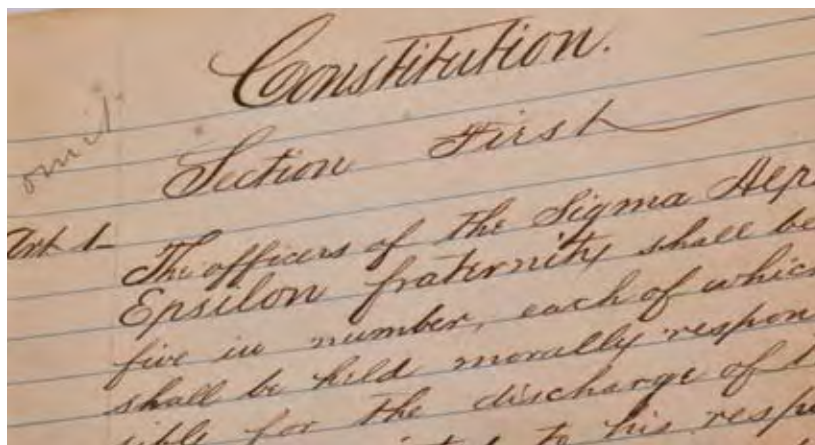 Constitution.
omit
Section First
Art 1
The officers of the Sigma
Epsilon fraternity shall be
five in number, each of which
shall be held morally respon
sible for the discharge of
to his resp